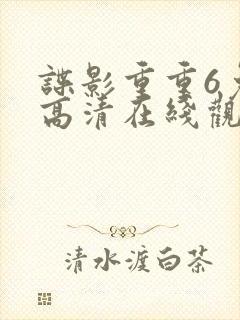 諜影重重6
高清在綫觀
清水渡白茶